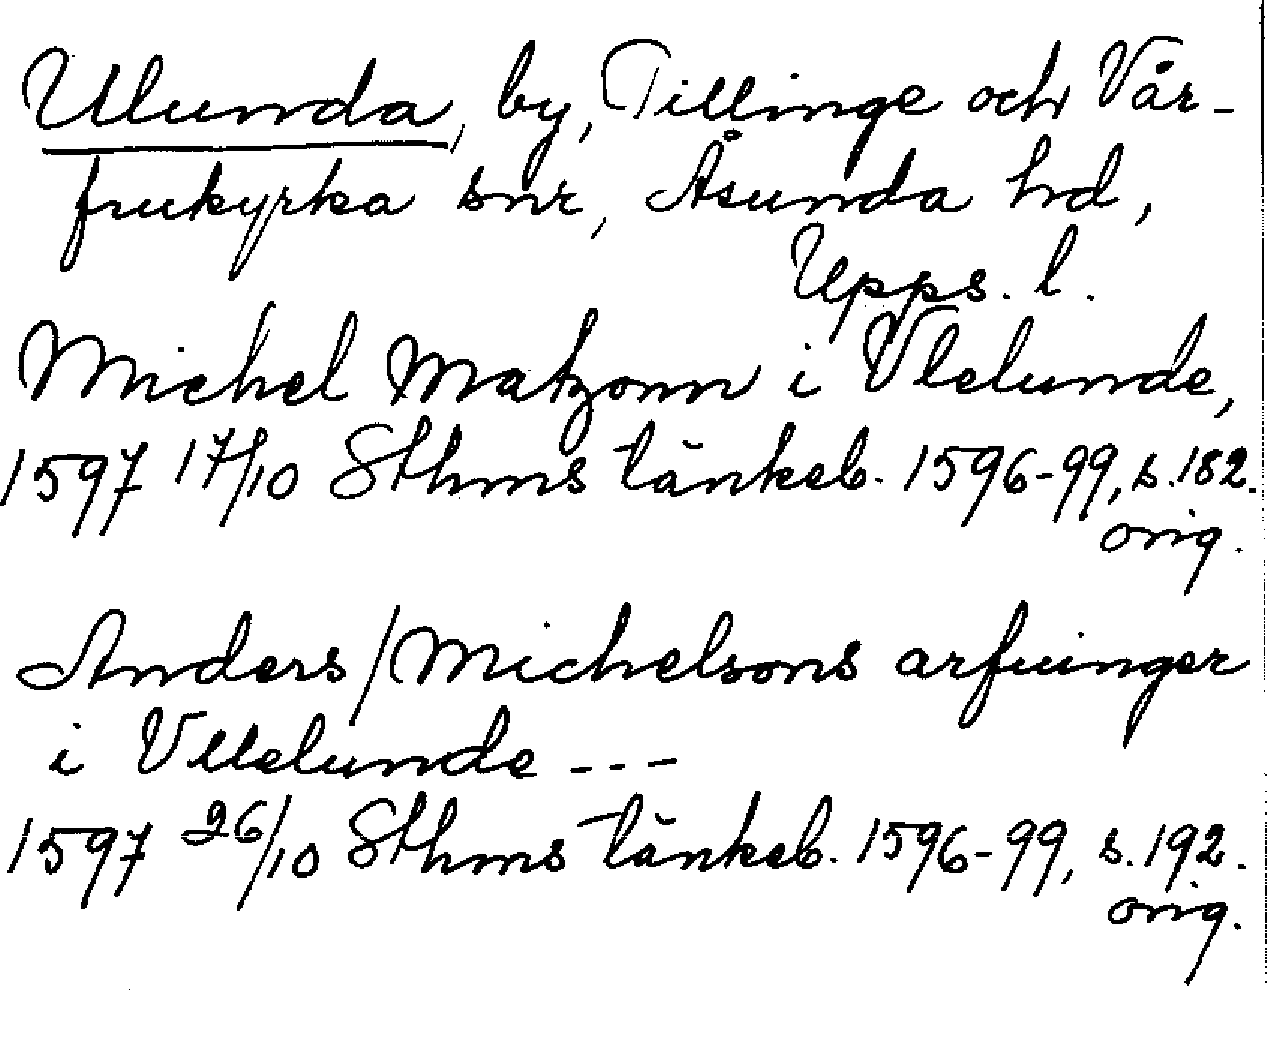 Ulunda, by, Tillinge och Vår-
frukyrka snr, Åsunda hd,
Upps. l.
Michel Matzonn i Vlelunde,
1597 17/10 Sthms tänkeb. 1596-99, s. 182.
orig.
Anders/Michelsons arfuinger
i Vllelunde ---
1597 26/10 Sthms tänkeb. 1596-99, s. 192.
orig.